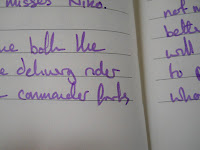 misses Niko.
me both the
e delivery rider
commander Park,
not m
bette
will
to p
who